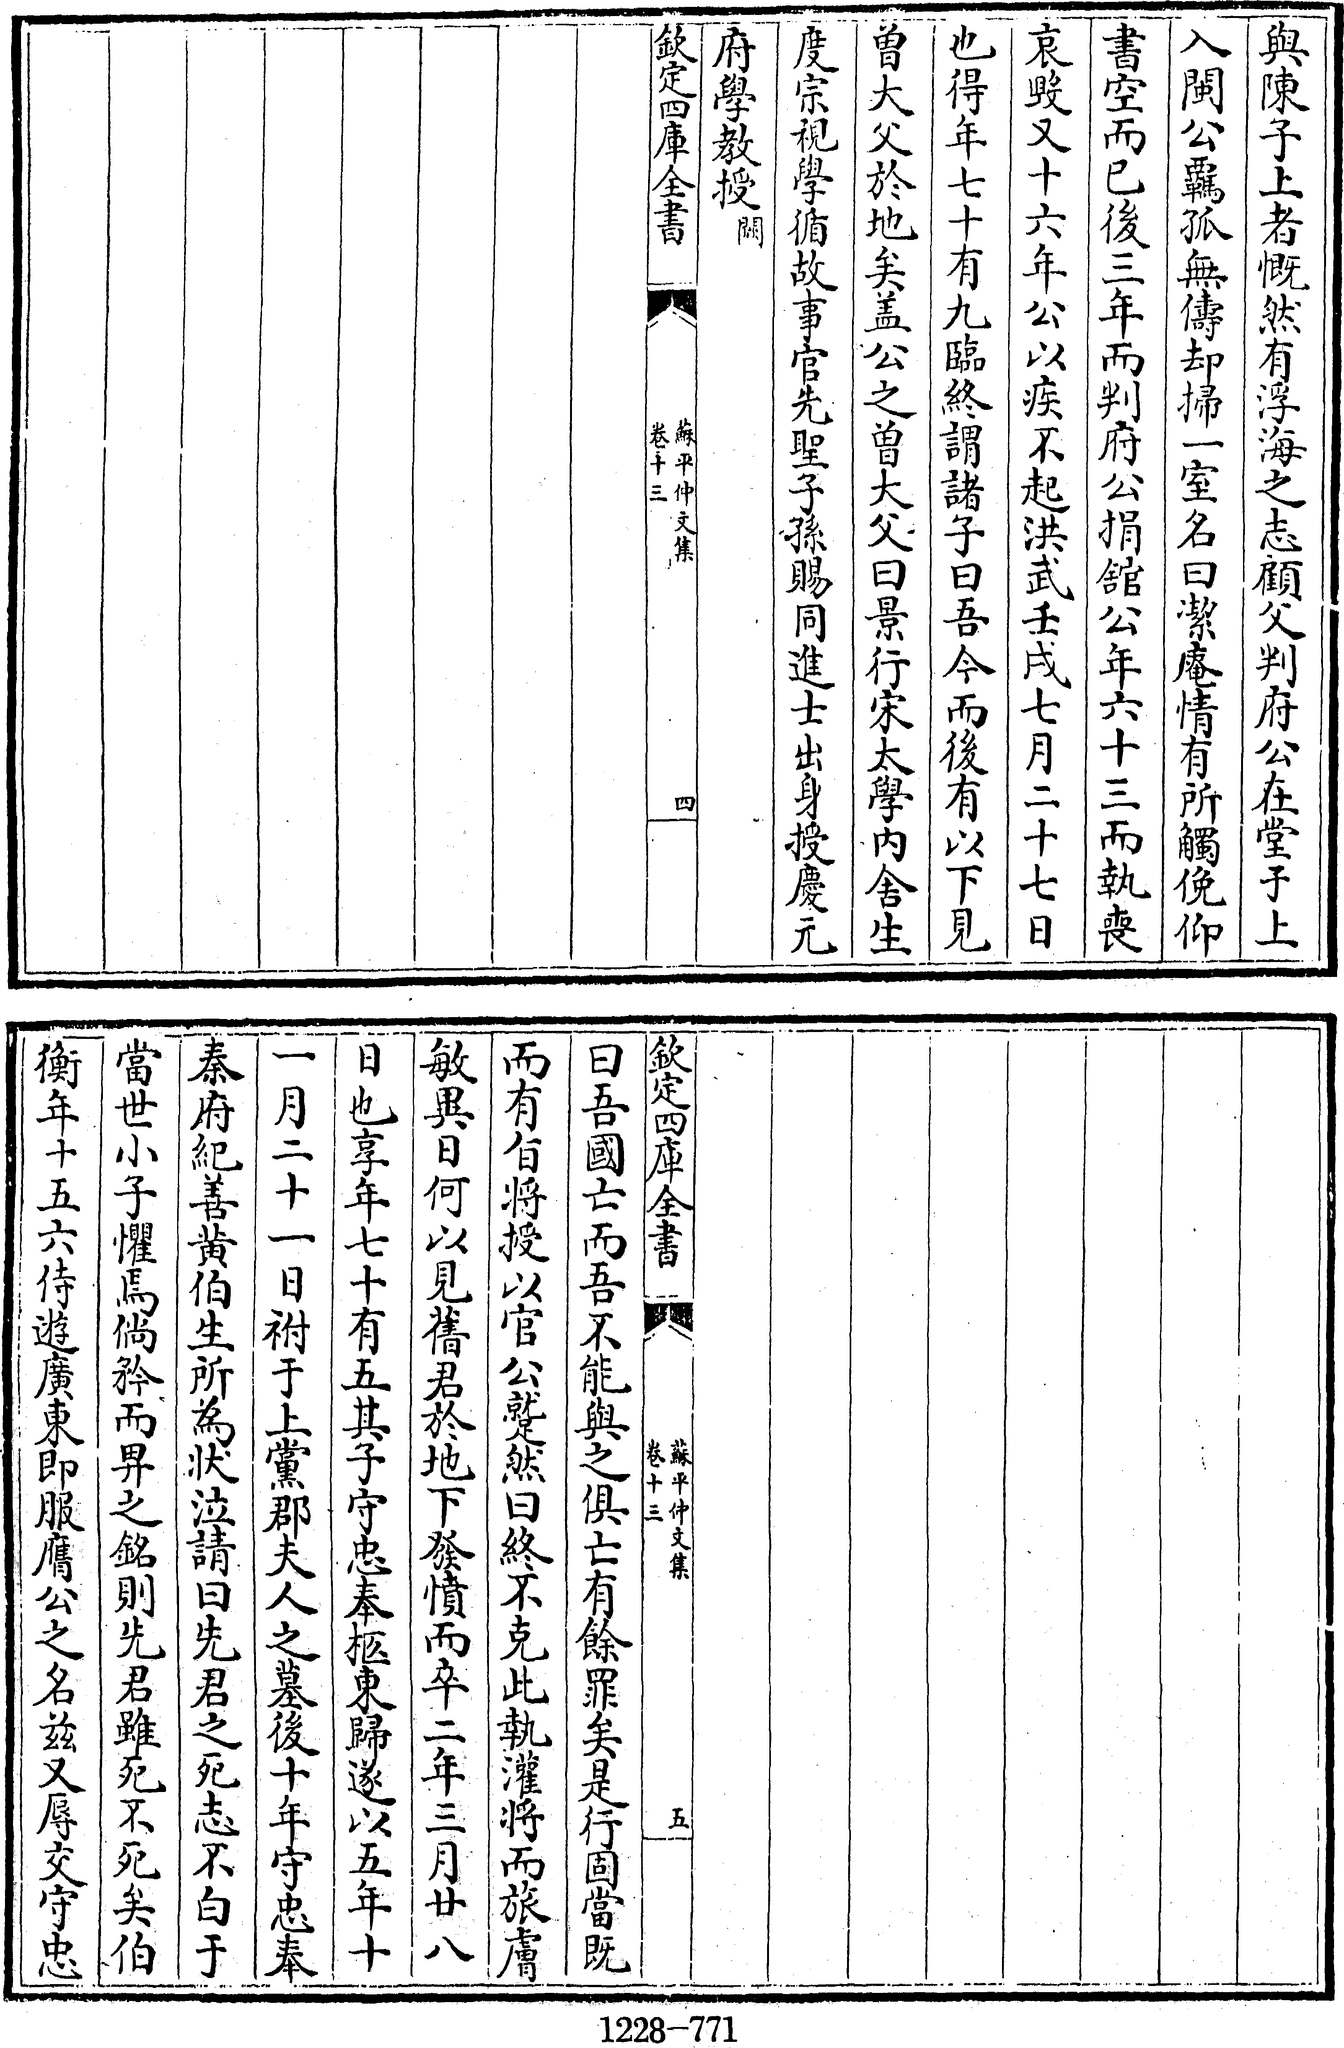 與陳子上者慨然有浮海之志顧父判府公在堂子上
入閩公羈孤無儔却掃一室名曰潔庵情有所觸俛仰
書空而已後三年而判府公捐舘公年六十三而執喪
哀毀又十六年公以疾不起洪武壬戌七月二十七日
也得年七十有九臨終謂諸子曰吾今而後有以下見
曽大父於地矣盖公之曽大父曰景行宋太學内舍生
度宗視學循故事官先聖子孫賜同進士出身授慶元
府學教授闕
欽定四庫全書
蘇平仲文集
卷十三
四
欽定四庫全書
蘇平仲文集
卷十三
五
曰吾國亡而吾不能與之俱亡有餘罪矣是行固當既
而有㫖將授以官公蹵然曰終不克此執灌將而旅膚
敏異日何以見舊君於地下發憤而卒二年三月廿八
日也享年七十有五其子守忠奉柩東歸遂以五年十
一月二十一日祔于上黨郡夫人之墓後十年守忠奉
秦府紀善黄伯生所為狀泣請曰先君之死志不白于
當世小子懼焉倘矜而畀之銘則先君雖死不死矣伯
衡年十五六侍遊廣東即服膺公之名兹又辱交守忠
1228-771